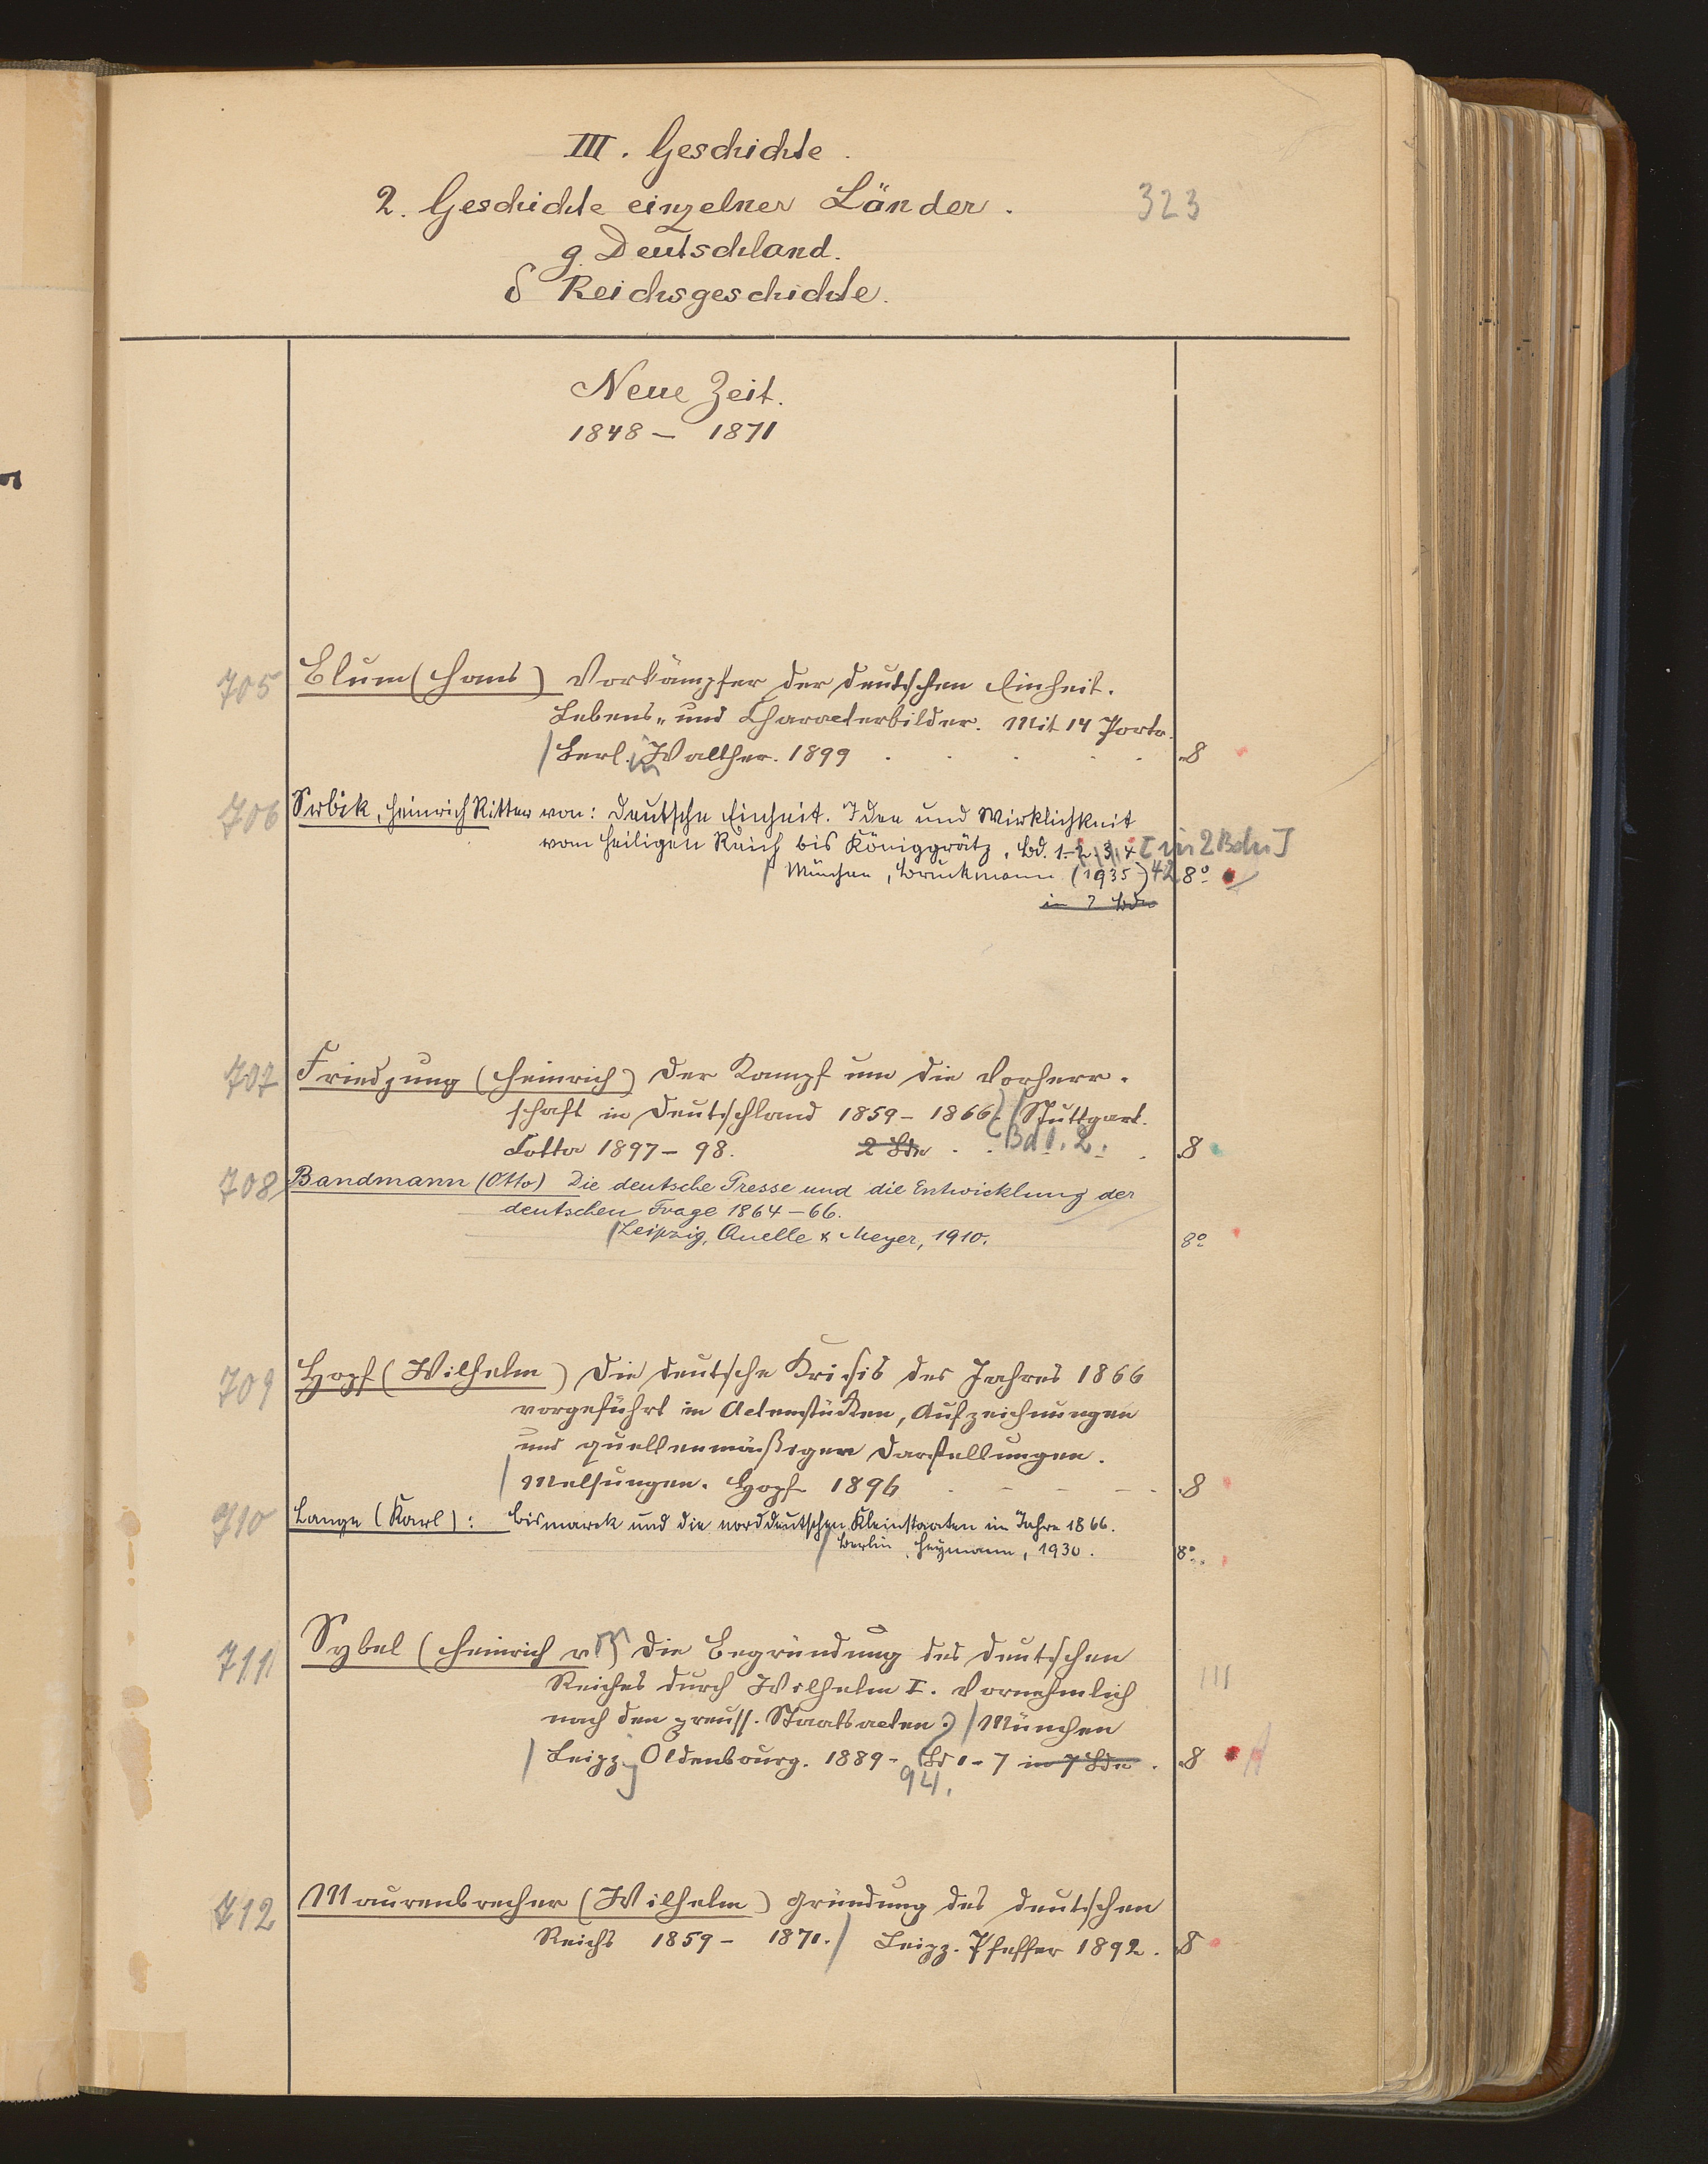 III. Geschichte.
2. Geschichte einzelner Länder.
323
g. Deutschland.
δ Reichsgeschichte.
Neue Zeit.
1848 – 1871
705 Blum (Hans) Vorkämpfer der deutschen Einheit.
Lebens- und Characterbilder. Mit 14 Portr.
Berl. Walther. 1899 . . . . . 8
706 Srbik, Heinrich Ritter von: Deutsche Einheit. Idee und Wirklichkeit
vom Heiligen Reich bis Königgrätz. Bd. 1-2. 3. 4 [in 2 Bdn]
München, Bruckmann (1935) 42 8°
in 2 Bdn
707 Friedjung (Heinrich) Der Kampf um die Vorherr-
schaft in Deutschland 1859 – 1866. Stuttgart.
Cotta 1897 – 98. 2 Bde . . Bd 1. 2. . 8
708 Bandmann (Otto) Die deutsche Presse und die Entwicklung der
deutschen Frage 1864–66.
Leipzig, Quelle & Meyer, 1910. 8°
709 Hopf (Wilhelm) Die deutsche Krisis des Jahres 1866
vorgeführt in Actenstücken, Aufzeichnungen
und quellenmäßigen Darstellungen.
Melsungen. Hopf 1896 . . . . . 8
710 Lange (Karl): Bismarck und die norddeutschen Kleinstaaten im Jahre 1866.
Berlin, Heymann, 1930. 8°
711 Sybel (Heinrich v.) Die Begründung des deutschen
Reiches durch Wilhelm I. Vornehmlich
III
nach den preuss. Staatsacten. München
Leipz. Oldenbourg. 1889- Bd 1-7 in 7 Bdn . 8
94.
712 Maurenbrecher (Wilhelm) Gründung des deutschen
Reichs 1859 – 1871. Leipz. Pfeffer 1892. 8